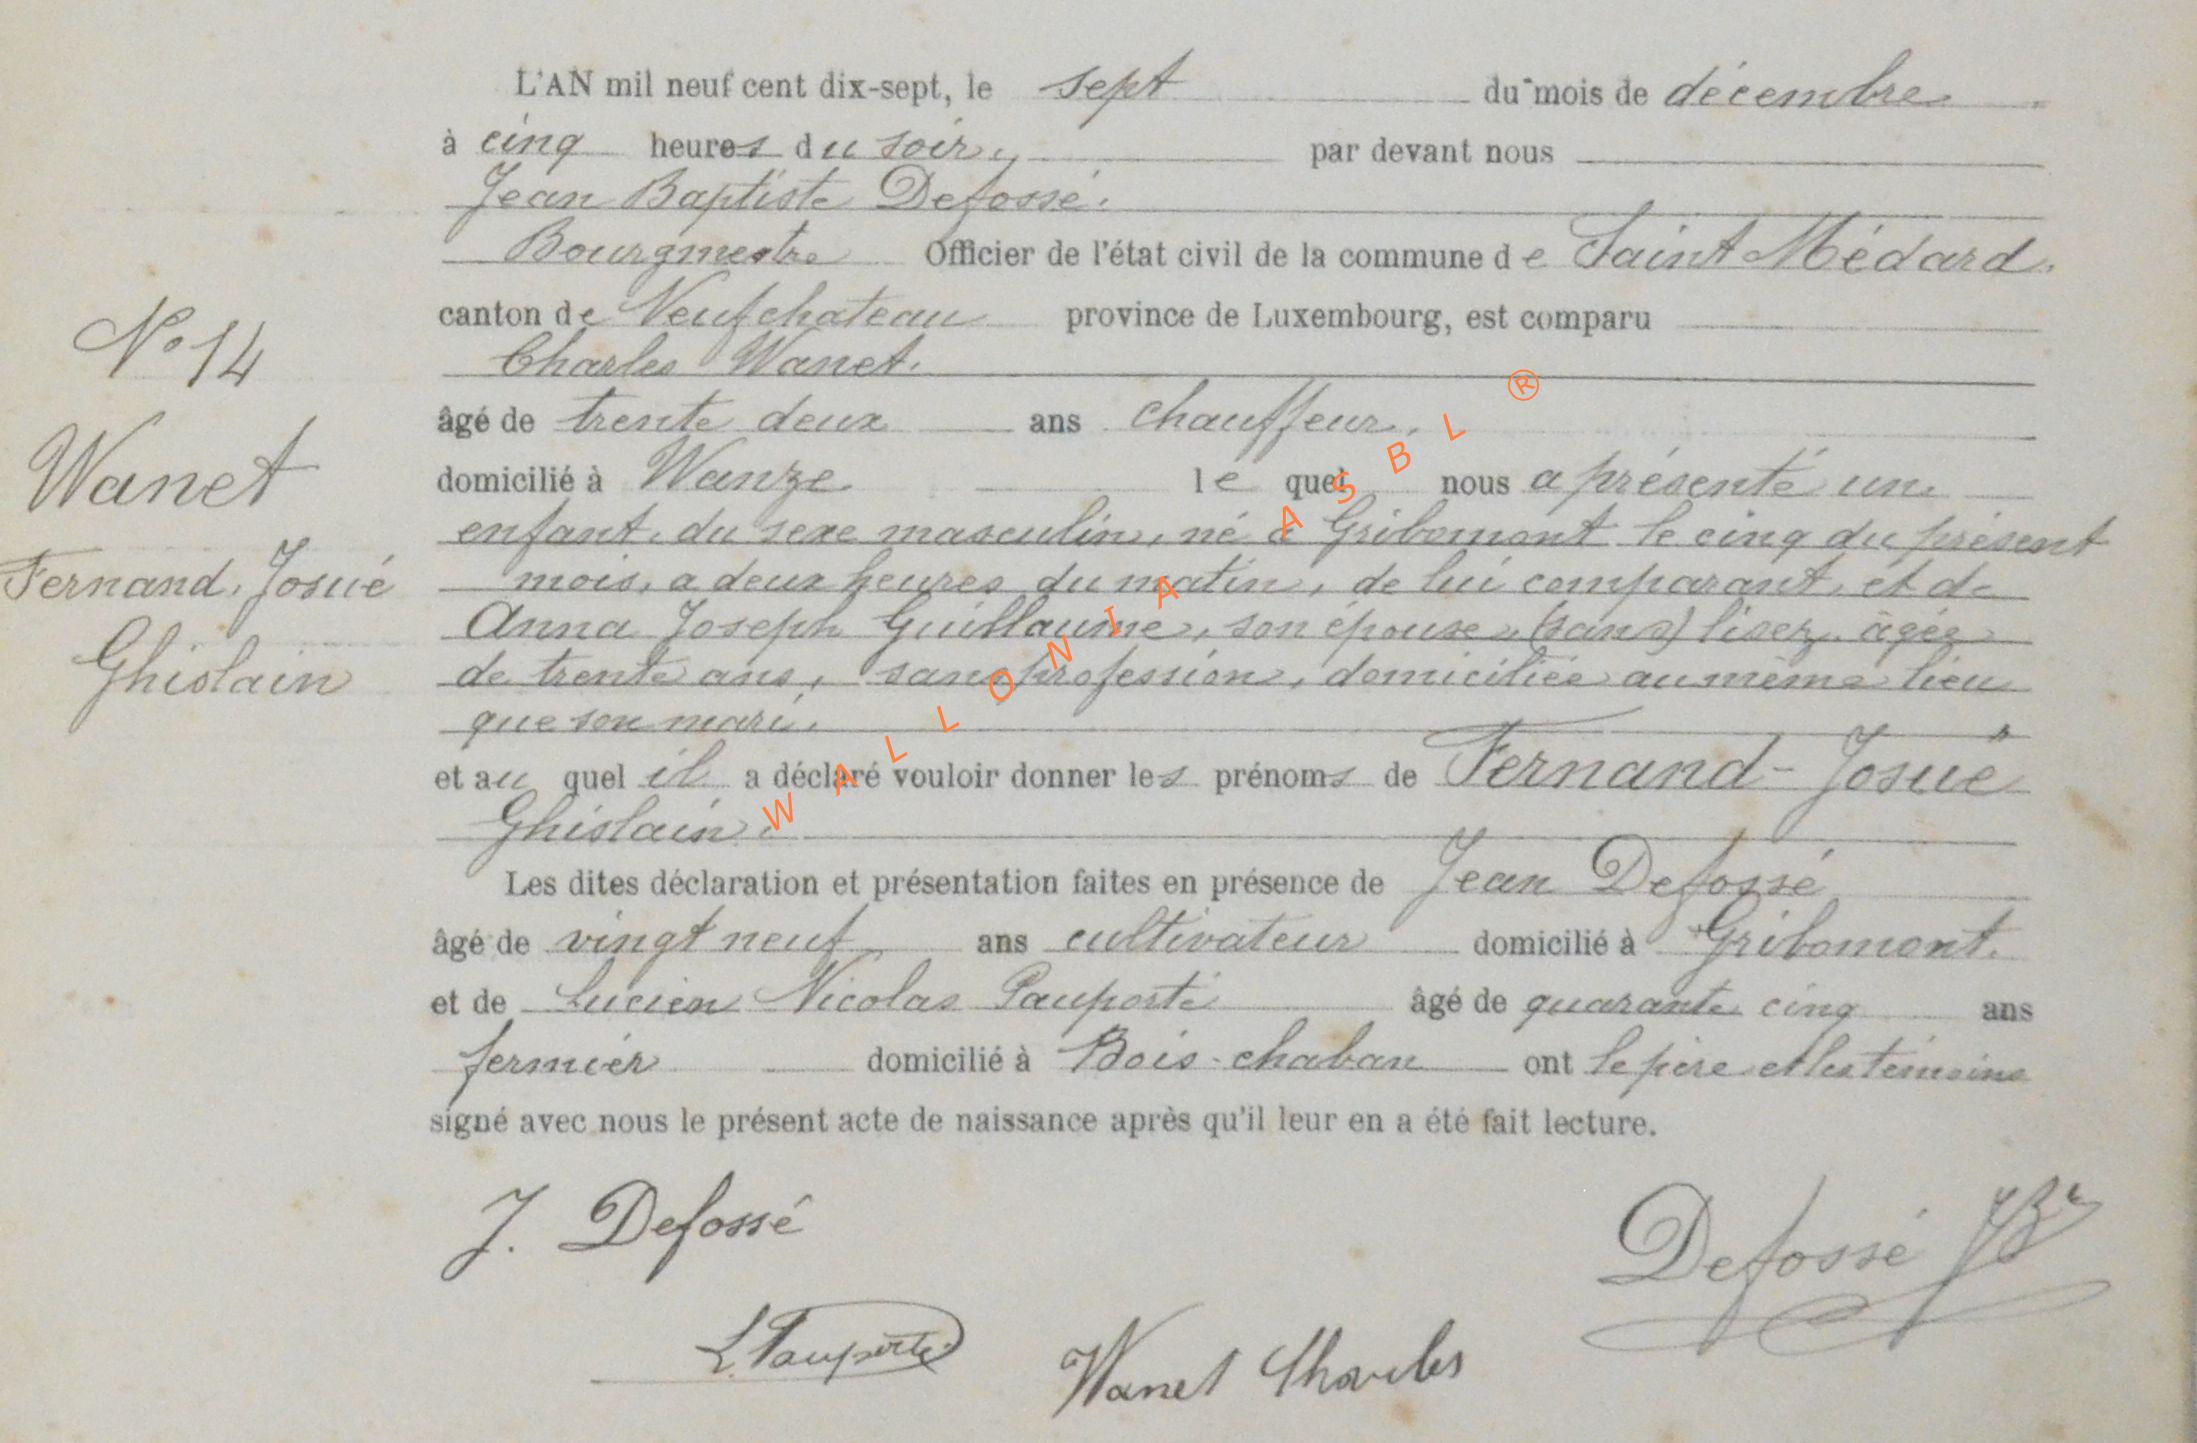 L'AN mil neuf cent dix-sept, le sept du mois de décembre
à cinq heures du soir, par devant nous
Jean Baptiste Defossé.
Bourgmestre Officier de l'état civil de la commune de Saint Médard.
canton de Neufchateau province de Luxembourg, est comparu
Charles Wanet.
âgé de trente deux ans chauffeur.
domicilié à Wanze le quel nous a présenté un
enfant du sexe masculin, né à Gribomont le cinq du présent
mois, a deux heures du matin, de lui comparant, et de
Anna Joseph Guillaume, son épouse, (sans) lisez âgée
de trente ans, sans profession, domiciliée au même lieu
que son mari.
et au quel il a déclaré vouloir donner les prénoms de Fernand-Josué
Ghislain.
Les dites déclaration et présentation faites en présence de Jean Defossé
âgé de vingt neuf ans cultivateur domicilié à Gribomont.
et de Lucien Nicolas Pauporté âgé de quarante cinq ans
fermier domicilié à Bois-chaban ont le père et les témoins
signé avec nous le présent acte de naissance après qu'il leur en a été fait lecture.
N° 14
Wanet
Fernand, Josué
Ghislain
J. Defossé
Defossé JBte
L. Pauporté
Wanet Charles
WALLONIA ASBL ®